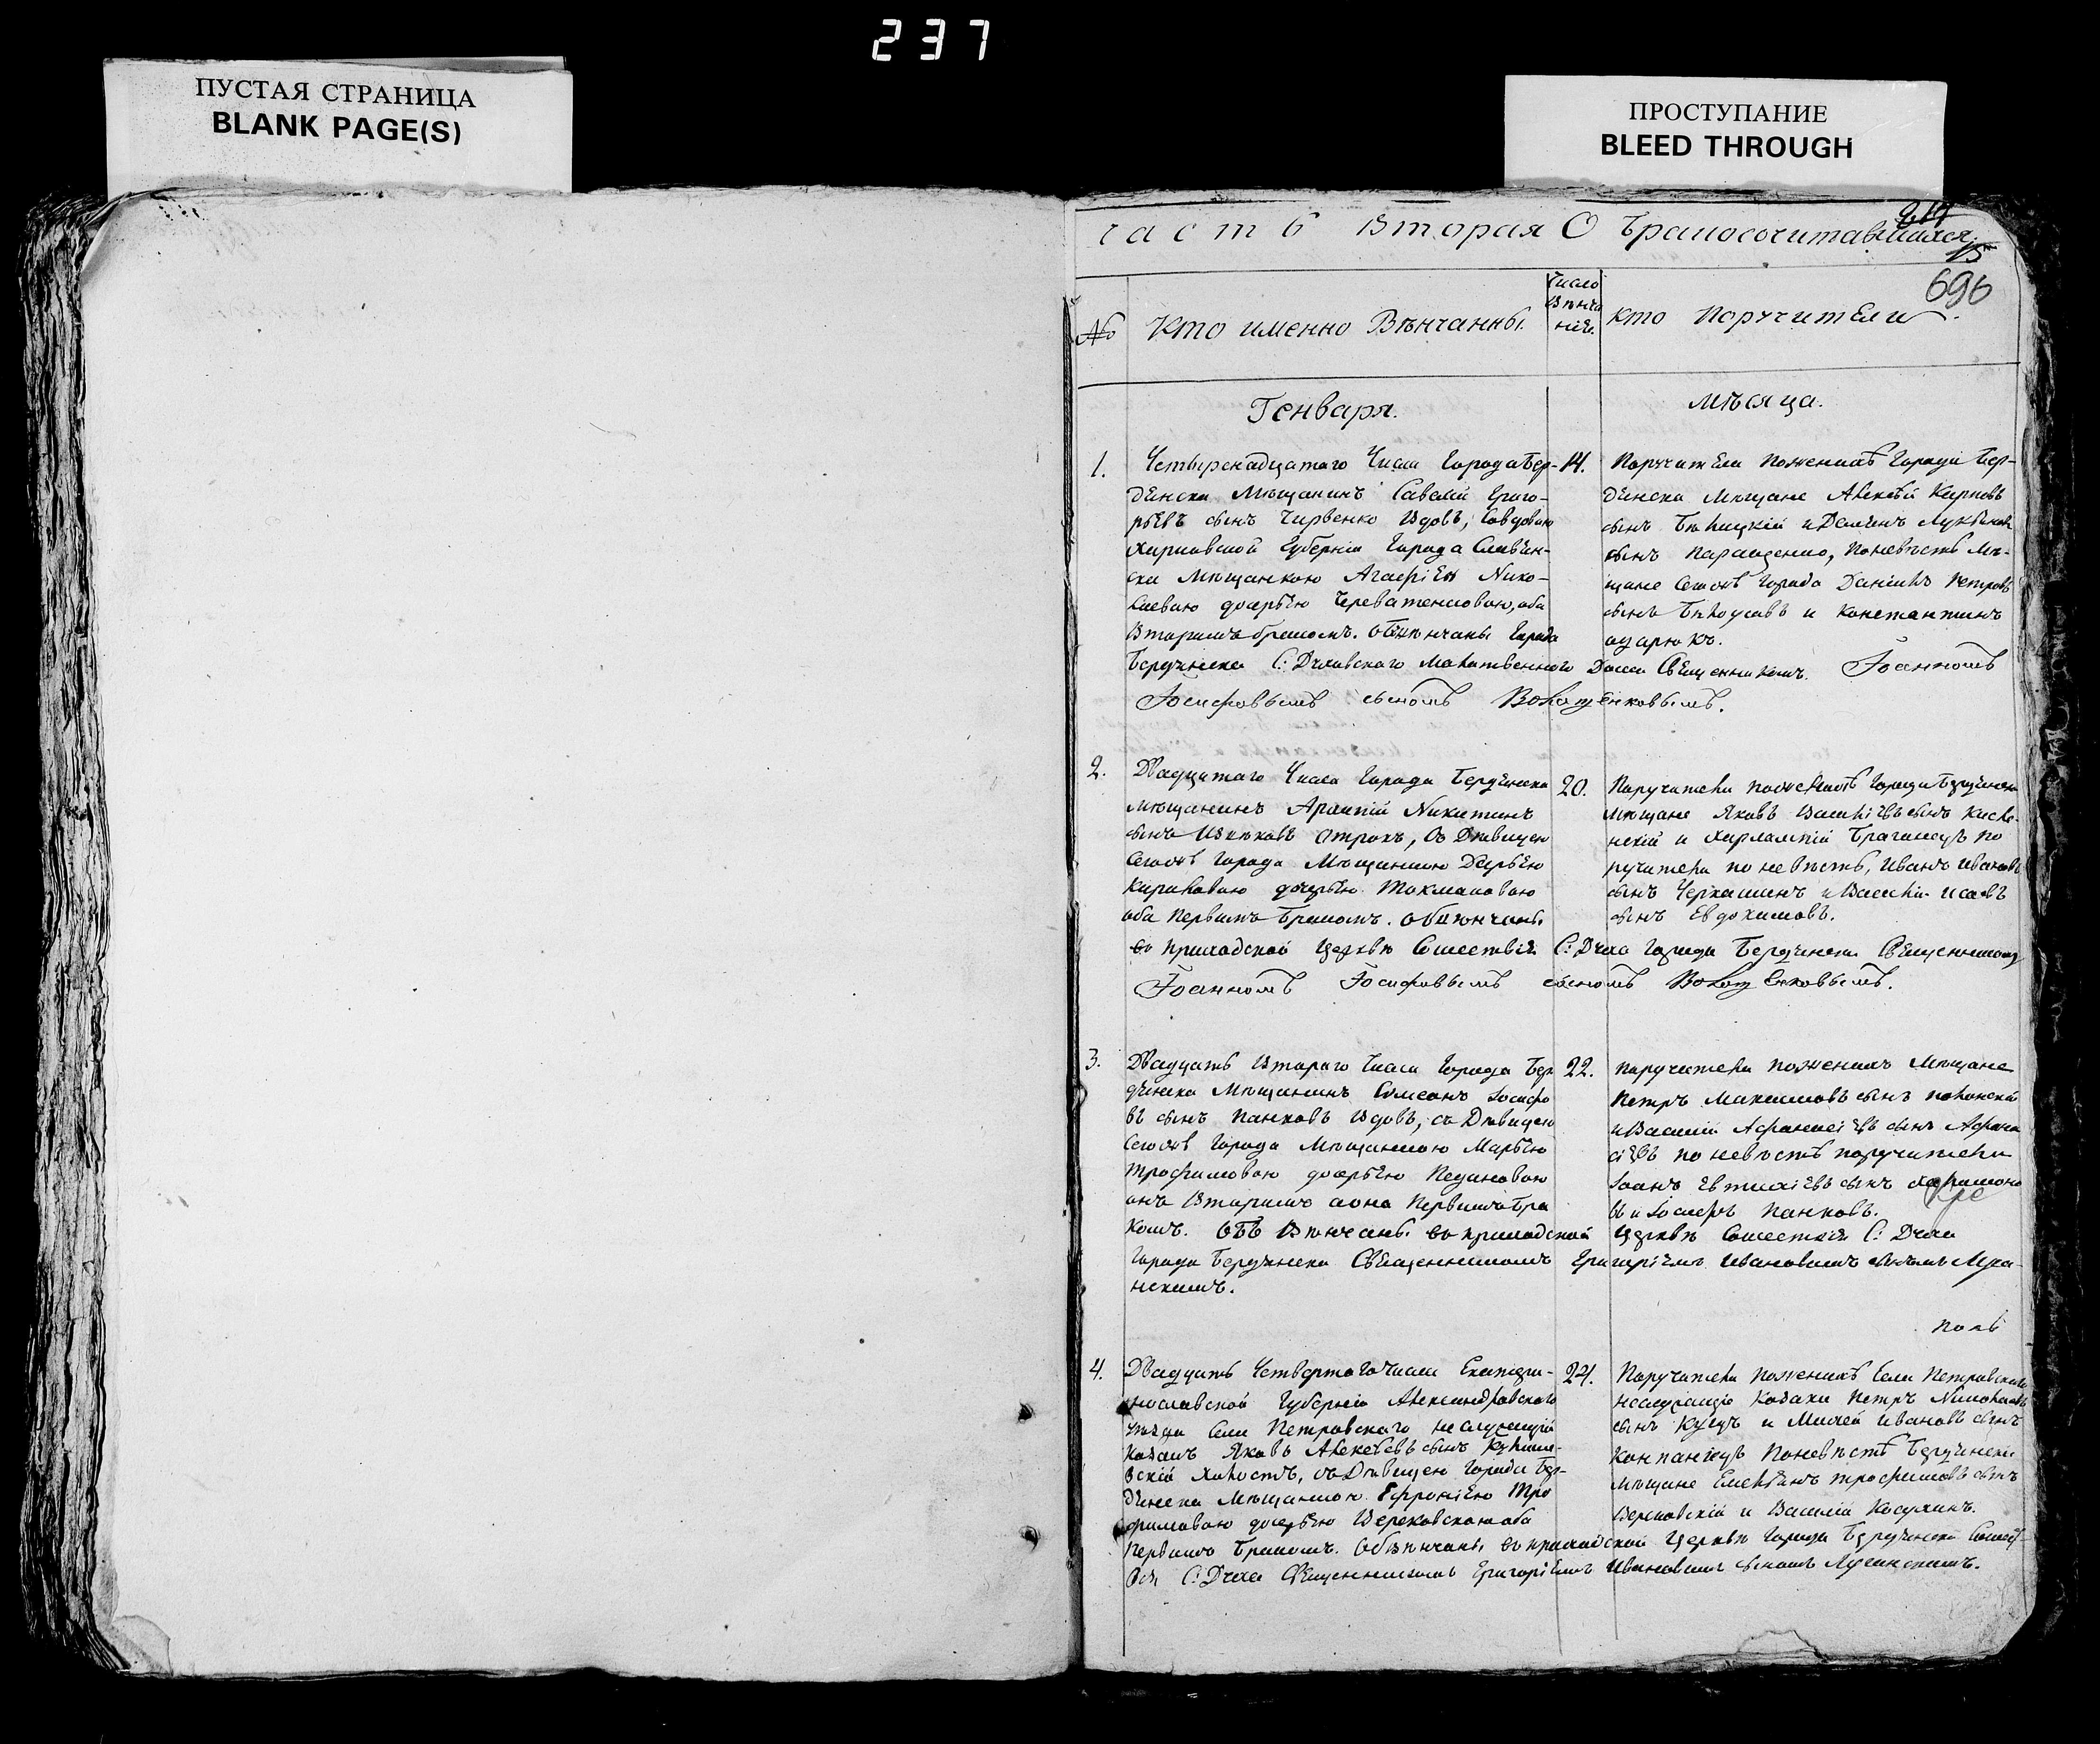 237
ПУСТАЯ СТРАНИЦА
BLANK PAGE(S)
ПРОСТУПАНИЕ
BLEED THROUGH
часть Вторая О Бракосочитавшихся.
15
696
№ Кто именно Вѣнчанны. Число Вѣнчанія. кто Поручители.
Генваря. мѣсяца.
1. Четырнадцатаго Числа Города Бер-
дянска Мѣщанинъ Савелій Григо-
рьевъ сынъ Чирвенко Вдовъ, Совдовою
Харковской Губерніи Города Славян-
ска Мѣщанкою Агафіею Нико-
лаевою дочерью оба
Вторымъ бракомъ. Обвѣнчаны Города
Бердянска С: Духовскаго Молитвенного Дома Священникомъ. Іоанномъ
Іосифовымъ сыномъ
14. Поручители по женихѣ Города Бер-
дянска Мѣщане Алексѣй Карповъ
сынъ Бѣлицкій и Демьянъ Лукьяновъ
сынъ по невѣстѣ Мѣ-
щане Сегожъ Города Даніилъ Петровъ
сынъ Бѣлоусовъ и Константинъ
2. Двадцатаго Числа Города Бердянска
Мѣщанинъ Никитинъ
сынъ отрокъ, Съ Дѣвицею
Сегожъ Города Мѣщанкою Дарьею
Кириловою дочерью Токмаковою
оба Первымъ Бракомъ. Обвѣнчаны
въ Приходской Церквѣ Сошествія С: Духа Города Бердянска Священникомъ
Іоанномъ Іосифовымъ сыномъ
20. Поручители по женихѣ Города Бердянска
Мѣщане Яковъ Васильевъ сынъ
и Харлампій По
ручители по невѣстѣ, Иванъ Ивановъ
сынъ Черкашинъ и Василій Исаевъ
сынъ Евдокимовъ.
3. Двадцать Втораго Числа Города Бер
дянска Мѣщанинъ Симеонъ Іосифо
въ сынъ Панковъ Вдовъ, съ Дѣвицею
Сегожъ Города Мѣщанкою Марьею
Трофимовою дочерью
онъ Вторымъ а она Первымъ Бра
комъ. Обвѣнчаны въ приходской Церквѣ Сошествія С: Духа
Города Бердянска Священникомъ Григоріемъ Ивановымъ сыномъ
22. поручители по женихѣ Мѣщане
Петръ Максимовъ сынъ Полонскій
и Василій Афанасіевъ сынъ Афана
сіевъ по невѣстѣ поручители
Іоанъ Евтихіевъ сынъ
въ и Іосифъ Панковъ.
4. Двадцать Четвертаго Числа Екатери-
нославской Губерніи Александровскаго
уѣзда Села Петровскаго неслужащій
Козакъ Яковъ Алексѣевъ сынъ
Холостъ, съ Дѣвицею Города Бер-
дянска Мѣщанкою Ефросиніею Тро
фимовою дочерью оба
Первымъ Бракомъ. Обвѣнчаны въ приходской Церквѣ Города Бердянска Сошест-
вія С: Духа Священникомъ Григоріемъ Ивановымъ сыномъ
24. Поручители по женихѣ Села Петровскаго
неслужащіе Козаки Петръ Николаевъ
сынъ и Михей Ивановъ сынъ
по невѣстѣ Бердянска
Мѣщане Емельянъ Трофимовъ сынъ
и Василій